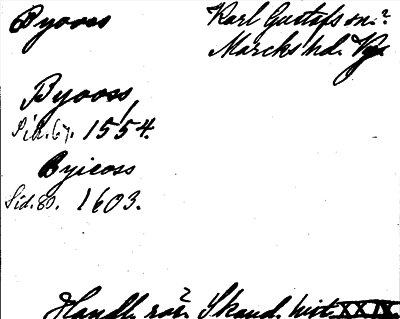 Byooss
Karl Gustafs sn.
Marcks hd.
Byooss,
Sid. 67. 1554.
Byicoss
Sid. 80. 1603.
Handl. rör. Skand. hist. XXIX